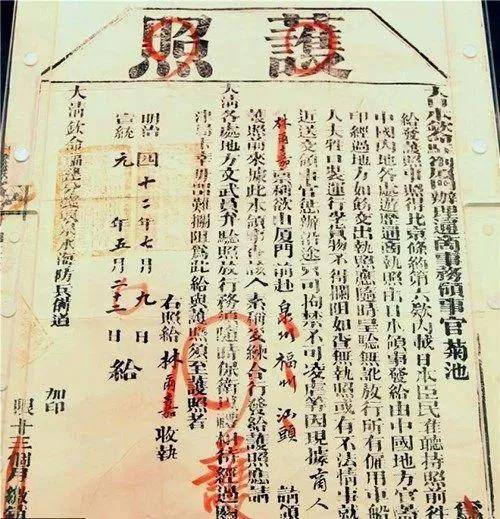 護照
大日本欽命駐劄廈門辦理通商事務領事官菊池
給發護照事照得北京條約第六款內載日本臣民准聽持照前往
中國內地各處遊歷通商執照由日本領事發給由中國地方官蓋
印經過地方如飭交出執照應隨時呈驗無訛放行所有僱用車船
人夫牲口裝運行李貨物不得攔阻如查無執照或有不法情事就
近送交領事官懲辦沿途只可拘禁不可凌虐等因現據商人
林爾嘉稟稱欲由廈門前赴泉州福州汕頭請領
護照前來據此本領事查該人素稱妥練合行發給護照應請
大清各處地方文武員弁驗照放行務須隨時保衛經過關
津局卡幸毋留難攔阻為此給與護照須至護照者
右照給林爾嘉收執
明治四十二年七月九日
宣統元年五月二十二日給
大清欽命福建分巡興泉永海防兵備道加印
限十三個月繳銷
護